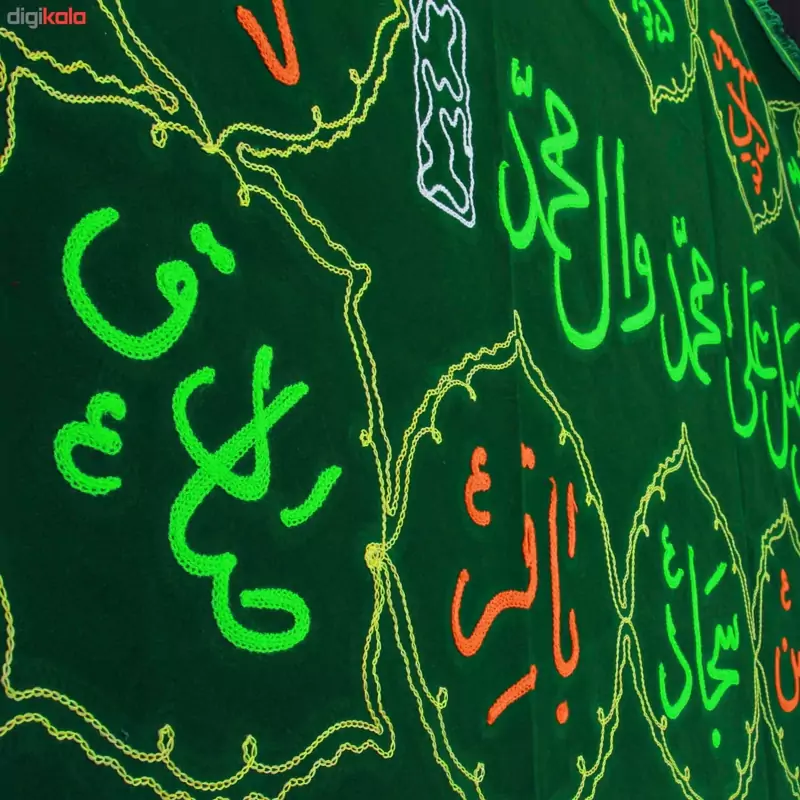 digikala
صل علی محمد وال محمد
صادق ع
باقر ع
سجاد ع